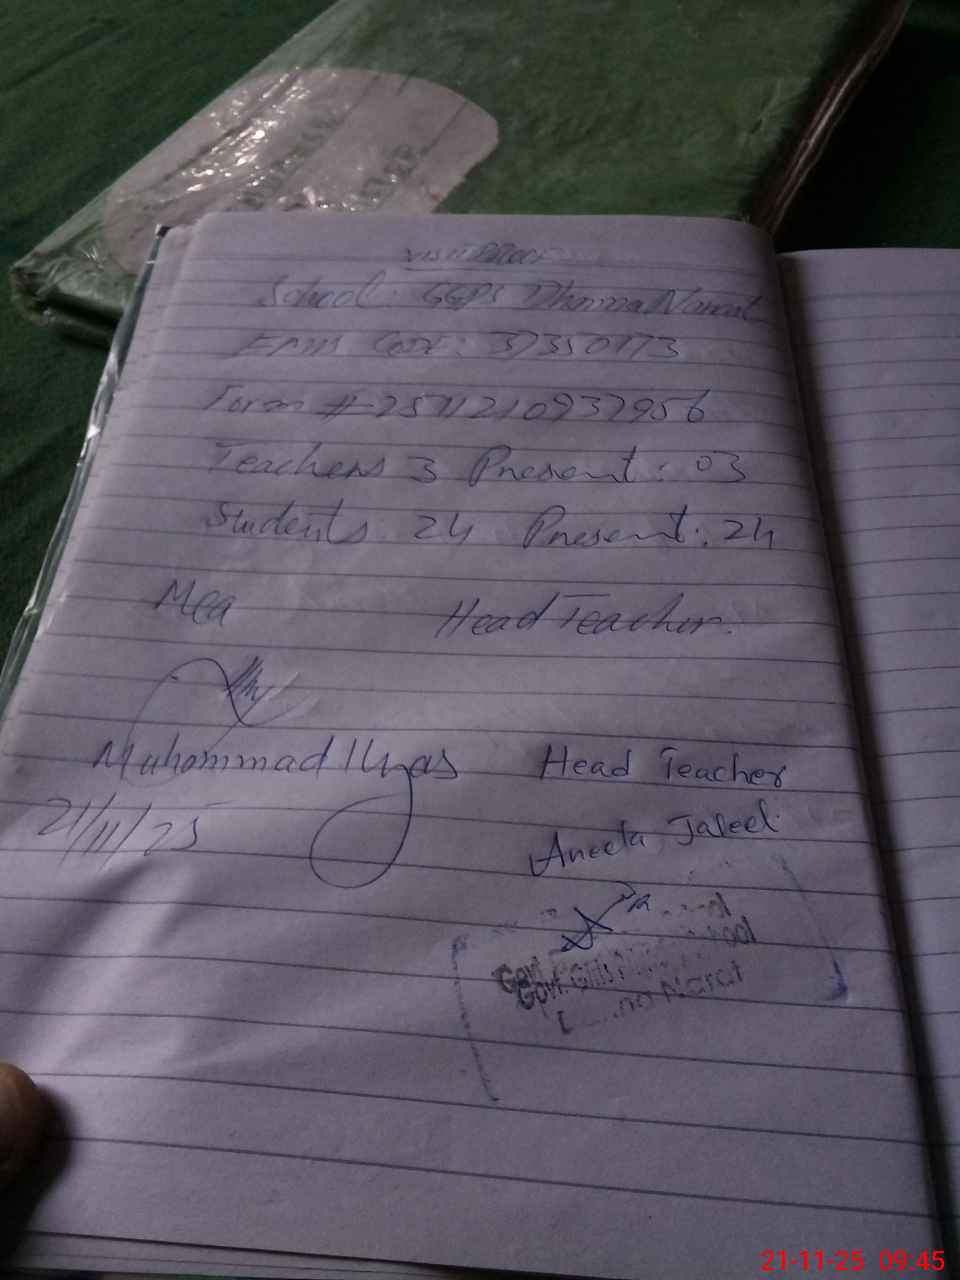 Visit Proof
School: GGPS Dhamna Narat
EMIS Code: 37350173
Form # 2511210937956
Teachers 3 Present: 03
Students 24 Present: 24
Mea Head Teacher.
Muhammad Ilyas Head Teacher
21/11/25 Aneela Jaleel
Govt. Girls
Narat
21-11-25 09:45